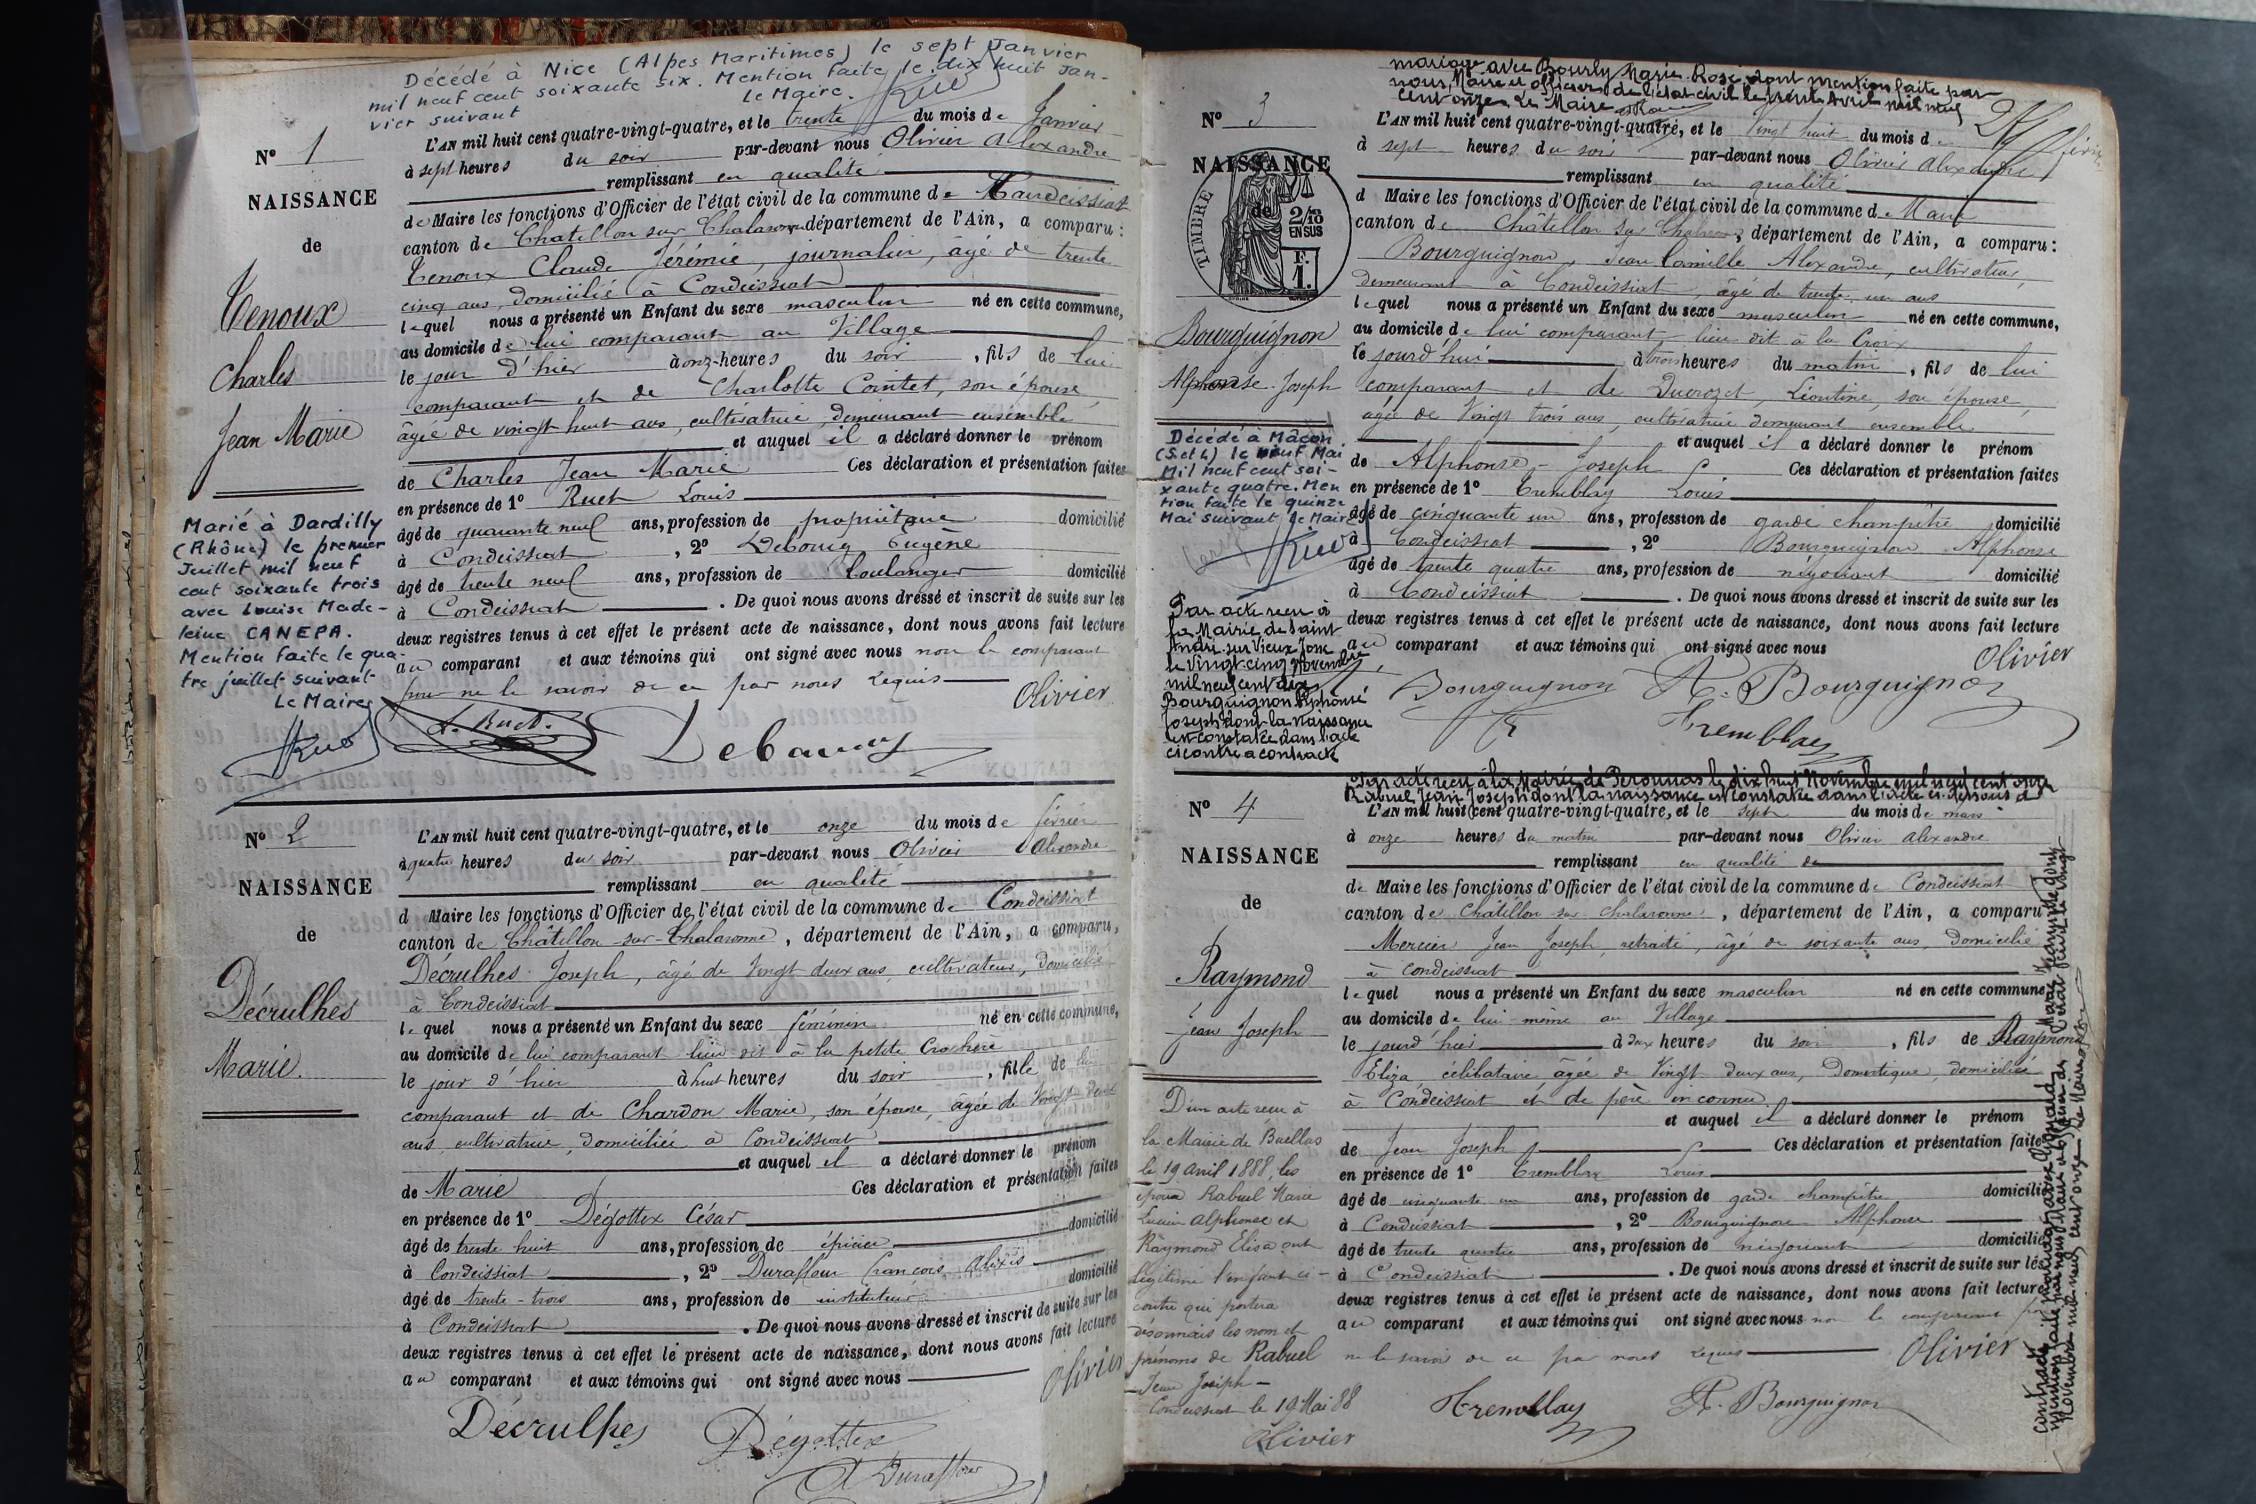 Décédé à Nice (Alpes Maritimes) le sept Janvier
mil neuf cent soixante six. Mention faite le dix huit Jan-
vier suivant Le Maire.
N° 1
NAISSANCE
de
Tenoux
Charles
Jean Marie
Marié à Dardilly
(Rhône) le premier
Juillet mil neuf
cent soixante trois
avec Louise Made-
leine CANEPA.
Mention faite le qua-
tre juillet suivant
Le Maire
L'AN mil huit cent quatre-vingt-quatre, et le trente du mois de Janvier
à sept heures du soir par-devant nous Olivier Alexandre
remplissant en qualité
de Maire les fonctions d'Officier de l'état civil de la commune de Condeissiat
canton de Chatillon sur Chalaronne département de l'Ain, a comparu :
Tenoux Claude Jérémie, journalier, âgé de trente
cinq ans, domicilié à Condeissiat
lequel nous a présenté un Enfant du sexe masculin né en cette commune,
au domicile de lui comparant au Village
le jour d'hier à onz-heures du soir, fils de lui
comparant et de Charlotte Cointet, son épouse
âgée de vingt huit ans, cultivatrice, demeurant ensemble
et auquel il a déclaré donner le prénom
de Charles Jean Marie Ces déclaration et présentation faites
en présence de 1° Ruet Louis
âgé de quarante neuf ans, profession de propriétaire domicilié
à Condeissiat, 2° Debourg Eugène
âgé de trente neuf ans, profession de boulanger domicilié
à Condeissiat. De quoi nous avons dressé et inscrit de suite sur les
deux registres tenus à cet effet le présent acte de naissance, dont nous avons fait lecture
au comparant et aux témoins qui ont signé avec nous non le comparant
pour ne le savoir de ce par nous requis
Olivier
Ruet
N° 2
NAISSANCE
de
Décrulhes
Marie.
L'AN mil huit cent quatre-vingt-quatre, et le onze du mois de février
à quatre heures du soir par-devant nous Olivier Alexandre
remplissant en qualité
d Maire les fonctions d'Officier de l'état civil de la commune de Condeissiat
canton de Châtillon-sur-Chalaronne, département de l'Ain, a comparu,
Décrulhes Joseph, âgé de vingt deux ans, cultivateur, domicilié
à Condeissiat
lequel nous a présenté un Enfant du sexe féminin né en cette commune,
au domicile de lui comparant lieu dit à la petite
le jour d'hier à huit heures du soir, fille de lui
comparant et de Chardon Marie, son épouse, âgée de vingt deux
ans, cultivatrice, domiciliée à Condeissiat
et auquel il a déclaré donner le prénom
de Marie Ces déclaration et présentation faites
en présence de 1° Dégottex César
âgé de trente huit ans, profession de épicier domicilié
à Condeissiat, 2° Duraffour François Alexis
âgé de trente-trois ans, profession de instituteur domicilié
à Condeissiat. De quoi nous avons dressé et inscrit de suite sur les
deux registres tenus à cet effet le présent acte de naissance, dont nous avons fait lecture
au comparant et aux témoins qui ont signé avec nous
Olivier
Décrulhes Dégottex
Duraffour
mariage avec Bourly Marie-Rose dont mention faite par
nous, Maire et officier de l'état civil le trente Avril mil neuf
cent onze Le Maire
N° 3
NAISSANCE
de
TIMBRE
2/10 EN SUS
F. 1.
Bourguignon
Alphonse-Joseph
Décédé à Mâcon
(S et L) le neuf Mai
Mil neuf cent soi-
xante quatre. Men
tion faite le quinze
Mai suivant Le Maire
Par acte reçu à
la Mairie de Saint
André-sur-Vieux Jonc
le vingt-cinq Novembre
mil neuf cent dix
Bourguignon Alphonse
Joseph dont la naissance
est constatée dans l'acte
ci contre a contracté
L'AN mil huit cent quatre-vingt-quatre, et le vingt huit du mois de février
à sept heures du soir par-devant nous Olivier Alexandre
remplissant en qualité
d Maire les fonctions d'Officier de l'état civil de la commune de
canton de Châtillon sur Chalaronne, département de l'Ain, a comparu :
Bourguignon, Jean Camille Alexandre, cultivateur,
demeurant à Condeissiat, âgé de trente un ans
lequel nous a présenté un Enfant du sexe masculin né en cette commune,
au domicile de lui comparant lieu dit à la Croix
le jourd'hui à trois heures du matin, fils de lui
comparant et de Ducrozet, Léontine, son épouse,
âgée de vingt trois ans, cultivatrice demeurant ensemble
et auquel il a déclaré donner le prénom
de Alphonse-Joseph Ces déclaration et présentation faites
en présence de 1° Tremblay Louis
âgé de cinquante un ans, profession de garde champêtre domicilié
à Condeissiat, 2° Bourguignon Alphonse
âgé de trente quatre ans, profession de négociant domicilié
à Condeissiat. De quoi nous avons dressé et inscrit de suite sur les
deux registres tenus à cet effet le présent acte de naissance, dont nous avons fait lecture
au comparant et aux témoins qui ont signé avec nous
Olivier
Bourguignon A. Bourguignon
Tremblay
Par acte reçu à la Mairie de Péronnas le dix huit Novembre mil neuf cent onze
Rabuel Jean Joseph dont la naissance est constatée dans l'acte ci-dessous a
N° 4
NAISSANCE
de
Raymond
Jean Joseph
D'un acte reçu à
la Mairie de Buellas
le 19 avril 1888, les
époux Rabuel Marie
Lucien Alphonse et
Raymond Elisa ont
légitimé l'enfant ci-
contre qui portera
désormais les nom et
prénoms de Rabuel
Jean Joseph
Condeissiat le 19 Mai 88
Olivier
L'AN mil huit cent quatre-vingt-quatre, et le sept du mois de mars
à onze heures du matin par-devant nous Olivier Alexandre
remplissant en qualité de
de Maire les fonctions d'Officier de l'état civil de la commune de Condeissiat
canton de Châtillon sur Chalaronne, département de l'Ain, a comparu
Mercier Jean Joseph, retraité, âgé de soixante ans, domicilié
à Condeissiat
lequel nous a présenté un Enfant du sexe masculin né en cette commune,
au domicile de lui-même au Village
le jour d'hier à deux heures du soir, fils de Raymond
Eliza célibataire âgée de vingt deux ans, domestique, domiciliée
à Condeissiat et de père inconnu
et auquel il a déclaré donner le prénom
de Jean Joseph Ces déclaration et présentation faites
en présence de 1° Tremblay Louis
âgé de cinquante un ans, profession de garde champêtre domicilié
à Condeissiat, 2° Bourguignon Alphonse
âgé de trente quatre ans, profession de négociant domicilié
à Condeissiat. De quoi nous avons dressé et inscrit de suite sur les
deux registres tenus à cet effet le présent acte de naissance, dont nous avons fait lecture
au comparant et aux témoins qui ont signé avec nous non le comparant
ne le savoir de ce par nous requis
Olivier
Tremblay A. Bourguignon
contracté mariage avec
mention faite par nous Maire
Novembre mil neuf cent onze Le Maire